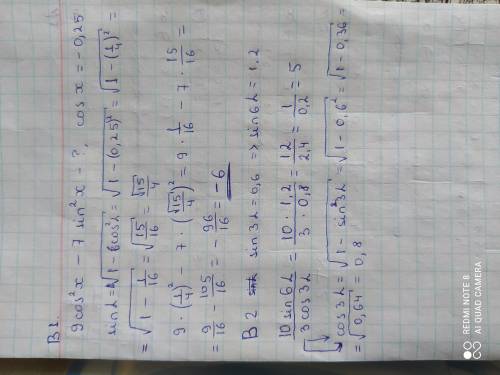 В1.
9cos²x - 7sin²x - ?, cos x = -0,25
sinα = √(1 - cos²α) = √(1 - (0,25)²) = √(1 - (1/4)²) =
= √(1 - 1/16) = √(15/16) = √15/4
9 · (1/4)² - 7 · (√15/4)² = 9 · 1/16 - 7 · 15/16 =
= 9/16 - 105/16 = - 96/16 = -6
В2 sin3α = 0,6 => sin6α = 1,2
10sin6α/3cos3α = 10 · 1,2/3 · 0,8 = 12/2,4 = 1/0,2 = 5
cos3α = √(1 - sin²3α) = √(1 - 0,6²) = √(1 - 0,36) =
= √0,64 = 0,8
REDMI NOTE 8
AI QUAD CAMERA